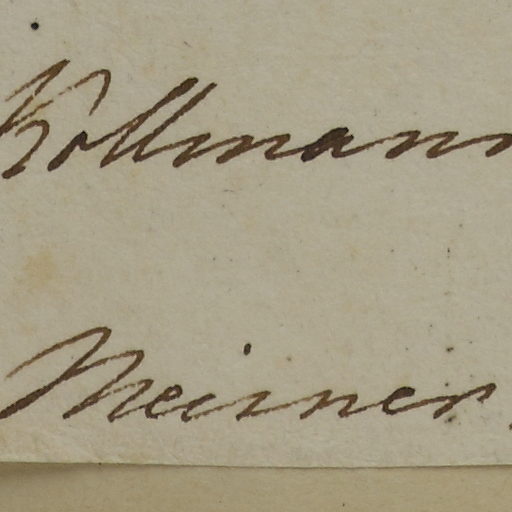 Kollmann
Meisner.